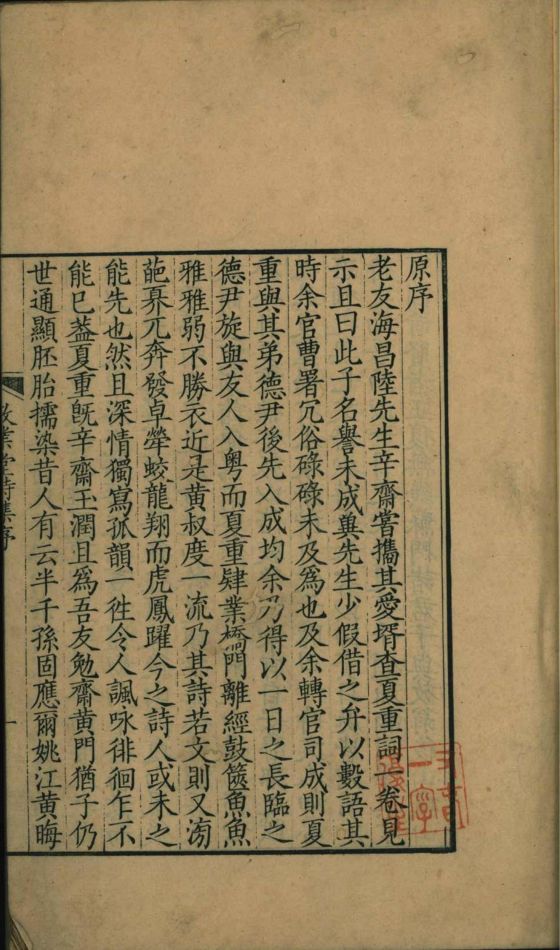 原序
老友海昌陸先生辛齋嘗攜其愛壻查夏重詞一卷見
示且曰此子名譽未成兾先生少假借之弁以數語其
時余官曹署冗俗碌碌未及爲也及余轉官司成則夏
重與其弟德尹後先入成均余乃得以一日之長臨之
德尹旋與友人入粤而夏重肄業橋門離經鼓篋魚魚
雅雅弱不勝衣近是黄叔度一流乃其詩若文則又淘
葩奡兀奔發卓犖蛟龍翔而虎鳳躍今之詩人或未之
能先也然且深情獨寫孤韻一徃令人諷咏徘徊乍不
能已葢夏重旣辛齋玉潤且爲吾友勉齋黄門猶子仍
世通顯胚胎擩染昔人有云半千孫固應爾姚江黄晦
敬業堂詩集序
一